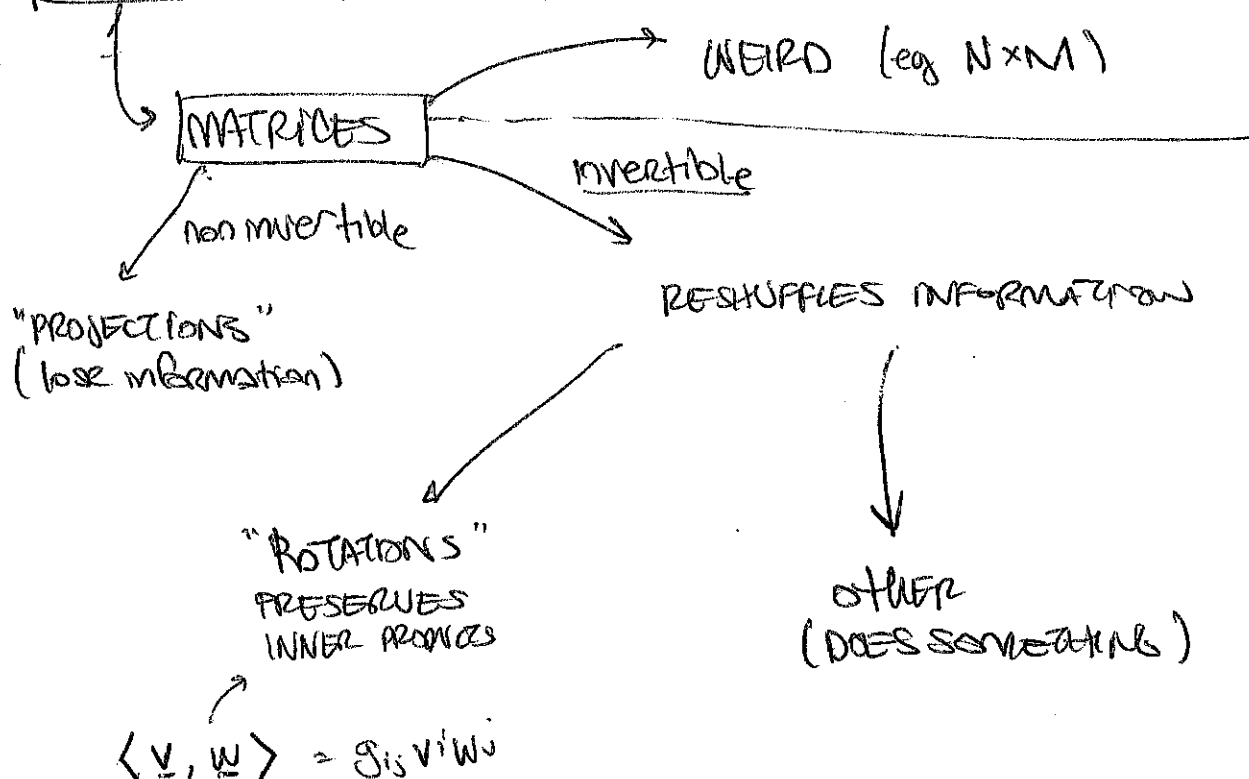 WEIRD (eg N×M)
MATRICES
invertible
noninvertible
RESHUFFLES INFORMATION
"PROJECTIONS"
(lose information)
"ROTATIONS"
PRESERVES
INNER PRODUCTS
OTHER
(DOES SOMETHING)
⟨v, w⟩ = gij vⁱwʲ